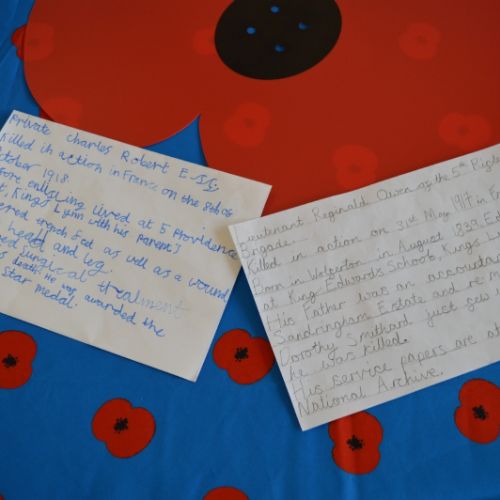 Private Charles Robert
Killed in action in France on the 8th of
October 1918.
enlisting lived at 5 Providence
King's Lynn with his Parents
trench feet as well as a wound
head and leg.
surgical treatment
death. He was awarded the
Star medal.
Lieutenant Reginald Owen of the 5th
Brigade.
Killed in action on 31st May 1917 in
Born in Wolferton in August
at King Edwards School, King's
His Father was an accountant
Sandringham Estate and re
Dorothy just
he was killed.
His service papers are at
National Archive.